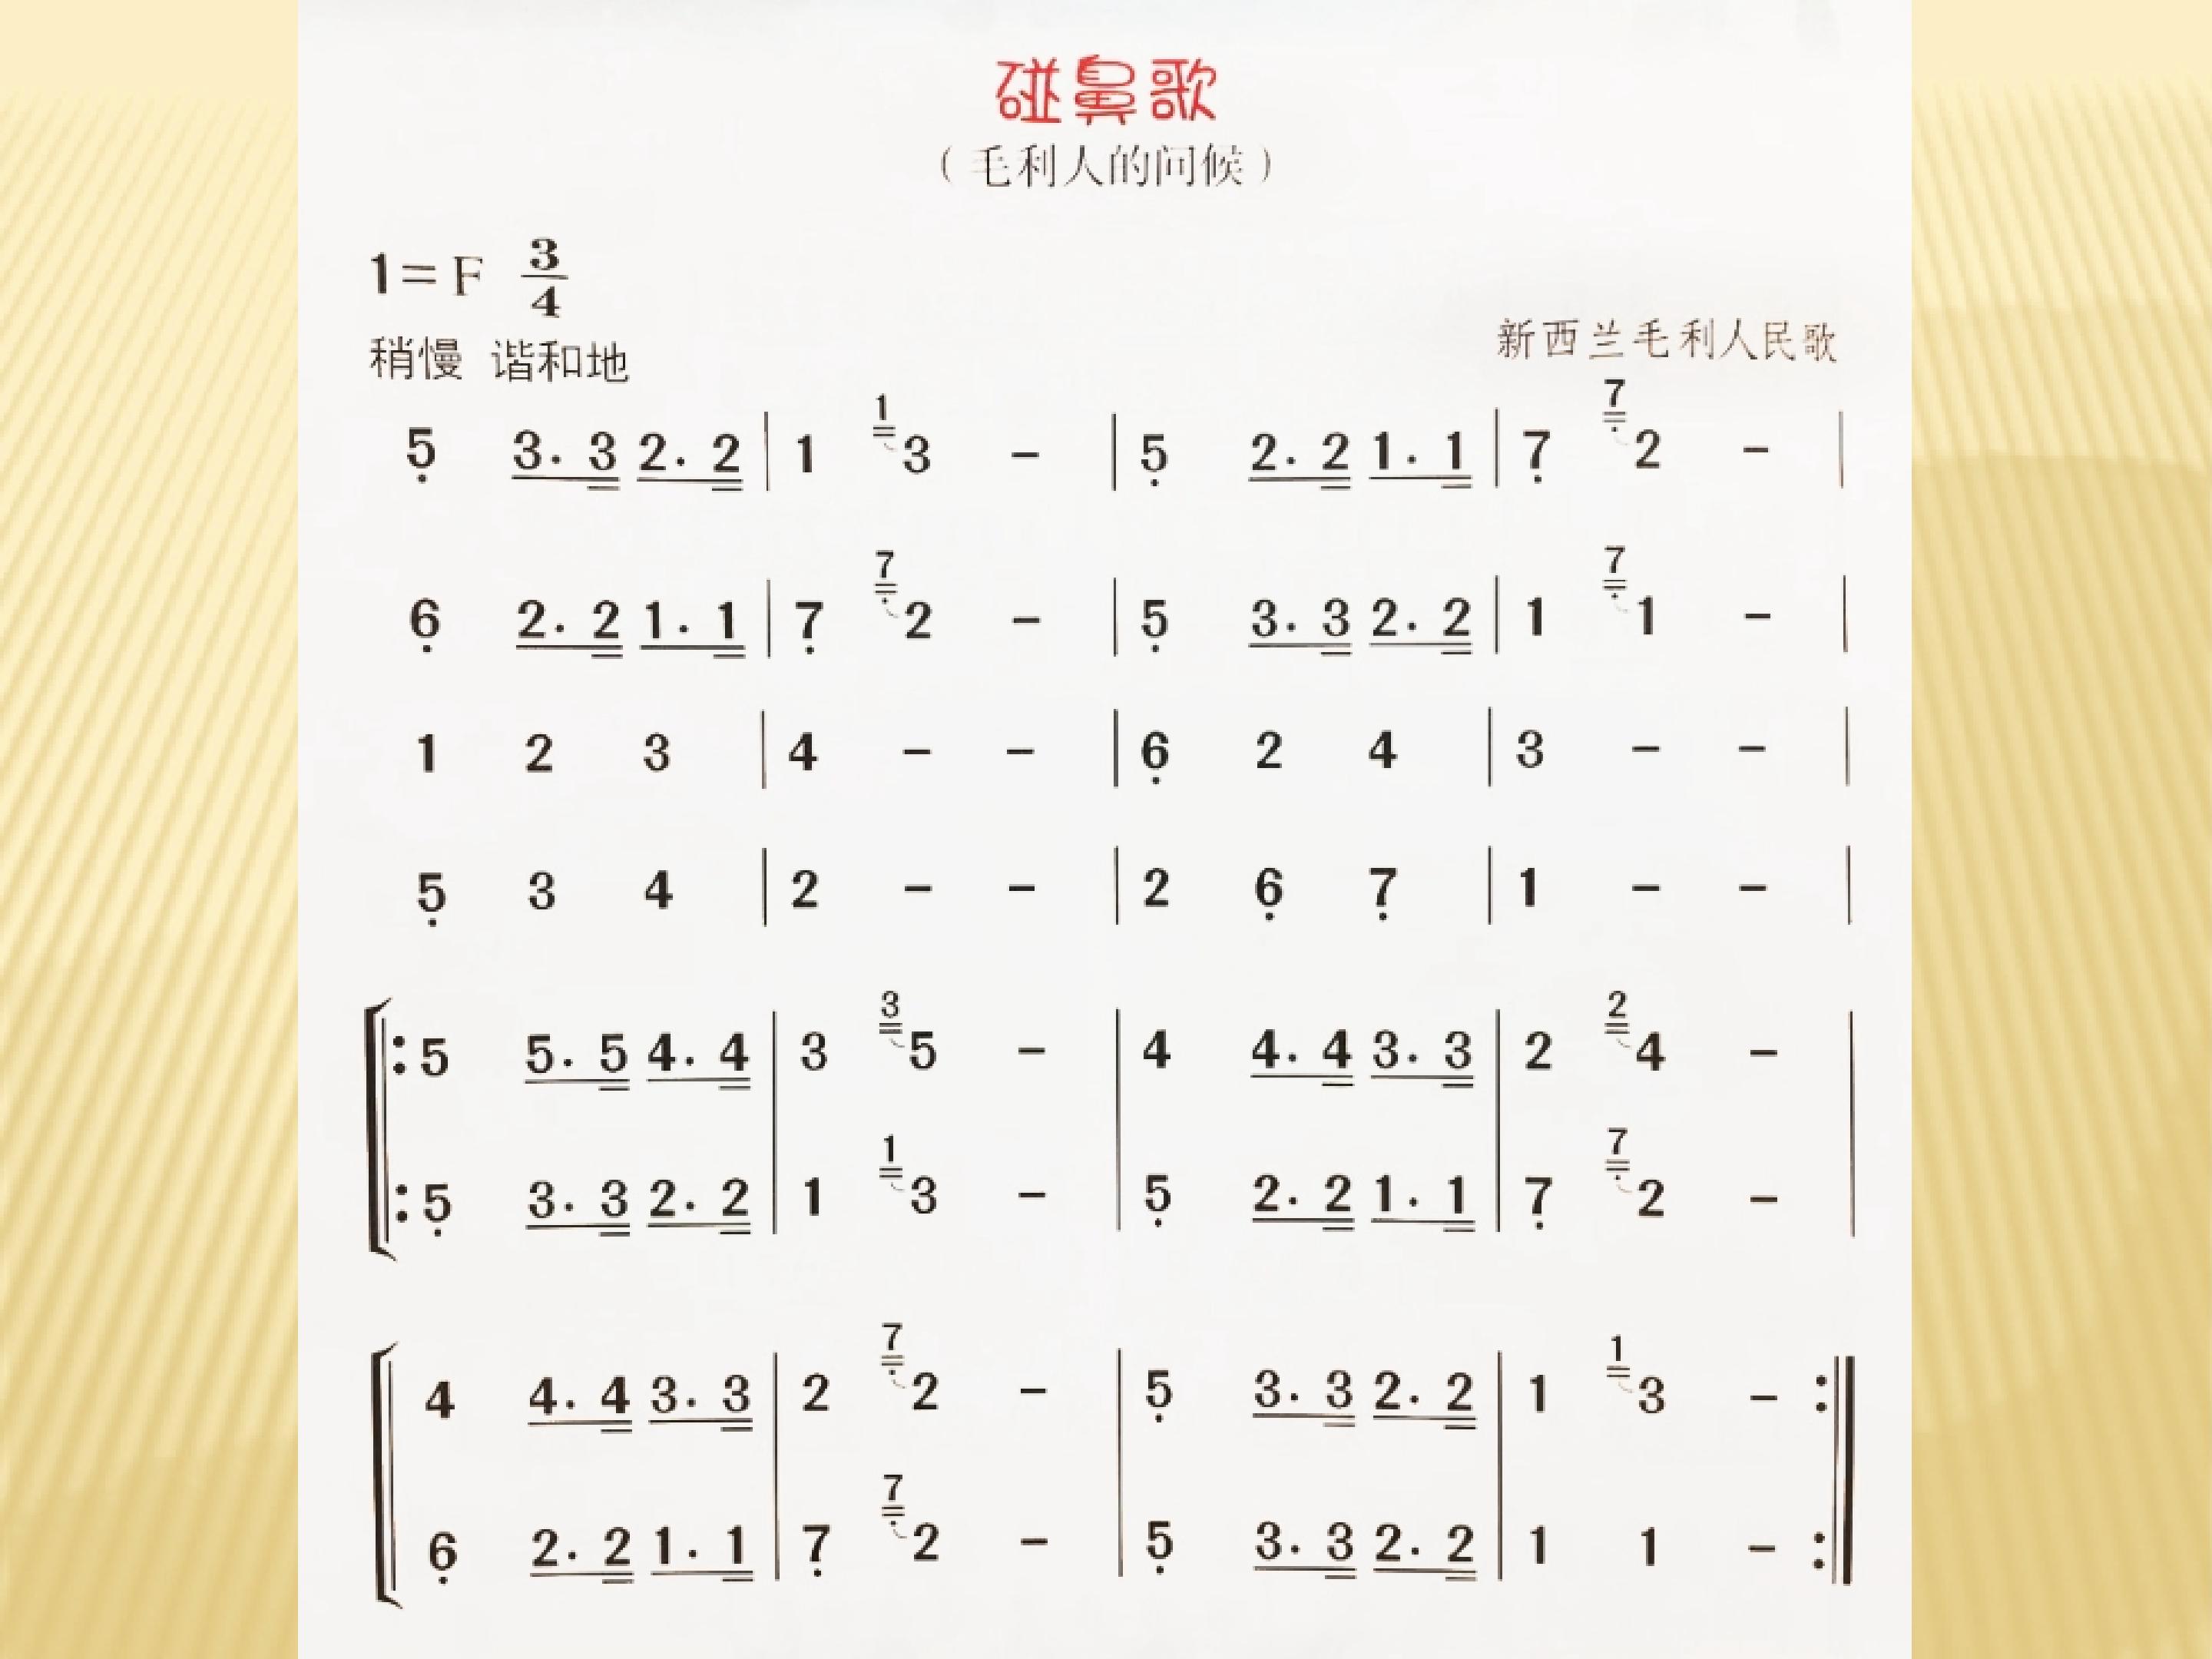 碰鼻歌
（毛利人的问候）
1=F 3/4
稍慢 谐和地
新西兰毛利人民歌
5̣ 3. 3 2. 2 | 1 1 3 - | 5̣ 2. 2 1. 1 | 7̣ 7̣ 2 - |
6̣ 2. 2 1. 1 | 7̣ 7̣ 2 - | 5̣ 3. 3 2. 2 | 1 7̣ 1 - |
1 2 3 | 4 - - | 6̣ 2 4 | 3 - - |
5̣ 3 4 | 2 - - | 2 6̣ 7̣ | 1 - - |
: 5 5. 5 4. 4 | 3 3 5 - | 4 4. 4 3. 3 | 2 2 4 - |
: 5̣ 3. 3 2. 2 | 1 1 3 - | 5̣ 2. 2 1. 1 | 7̣ 7̣ 2 - |
4 4. 4 3. 3 | 2 7̣ 2 - | 5̣ 3. 3 2. 2 | 1 1 3 - :
6̣ 2. 2 1. 1 | 7̣ 7̣ 2 - | 5̣ 3. 3 2. 2 | 1 1 - :